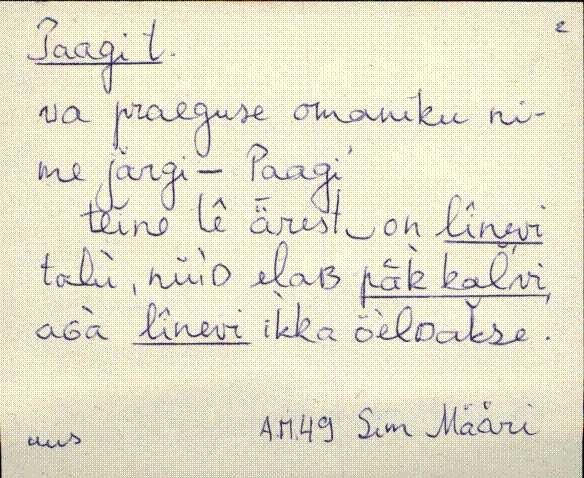 2
Paagi t.
va praeguse omaniku ni-
me järgi – Paagi
tèine tê ǟrest on lînevi
talù, nüìᴅ elaʙ pǟk kaĺvi,
aɢà lînevi ìkka öèlᴅakse.
uus A.M.49 Sim Määri